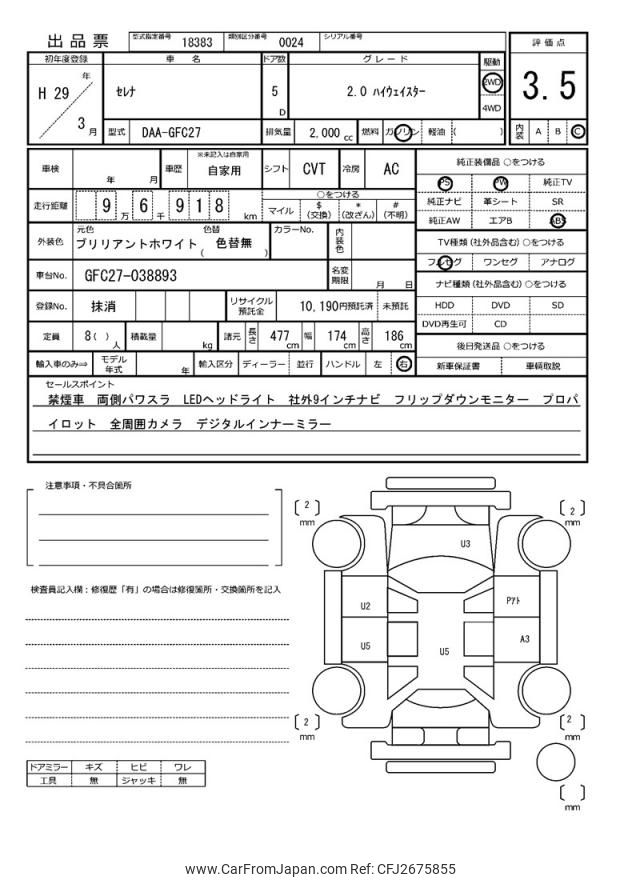 出品票 型式指定番号 18383 類別区分番号 0024 シリアル番号
評価点
3.5
内装 A B C
初年度登録 車名 ドア数 グレード 駆動
H 29 年 3 月
セレナ 5 D 2.0 ハイウェイスター 2WD 4WD
型式 DAA-GFC27 排気量 2,000 cc 燃料 ガソリン 軽油 ( )
車検 年 月 車歴 ※未記入は自家用 自家用 シフト CVT 冷房 AC
走行距離 9 万 6 千 9 1 8 km
○をつける
マイル $(交換) *(改ざん) #(不明)
外装色 元色 ブリリアントホワイト 色替 ( 色替無 ) カラーNo. 内装色
車台No. GFC27-038893 名変期限 月 日
登録No. 抹消 リサイクル預託金 10,190円預託済 未預託
定員 8( )人 積載量 kg 諸元 長さ 477 cm 幅 174 cm 高さ 186 cm
輸入車のみ⇒ モデル年式 年 輸入区分 ディーラー 並行 ハンドル 左 右
純正装備品 ○をつける
PS PW 純正TV
純正ナビ 革シート SR
純正AW エアB ABS
TV種類 (社外品含む) ○をつける
フルセグ ワンセグ アナログ
ナビ種類 (社外品含む) ○をつける
HDD DVD SD
DVD再生可 CD
後日発送品 ○をつける
新車保証書 車輌取説
セールスポイント
禁煙車 両側パワスラ LEDヘッドライト 社外9インチナビ フリップダウンモニター プロパ
イロット 全周囲カメラ デジタルインナーミラー
注意事項・不具合箇所
検査員記入欄：修復歴「有」の場合は修復箇所・交換箇所を記入
ドアミラー キズ ヒビ ワレ
工具 無 ジャッキ 無
[ 2 ] mm
[ 2 ] mm
U3
U2
Pｱﾄ
U5
U5
A3
[ 2 ] mm
[ 2 ] mm
[ ] mm
www.CarFromJapan.com Ref: CFJ2675855